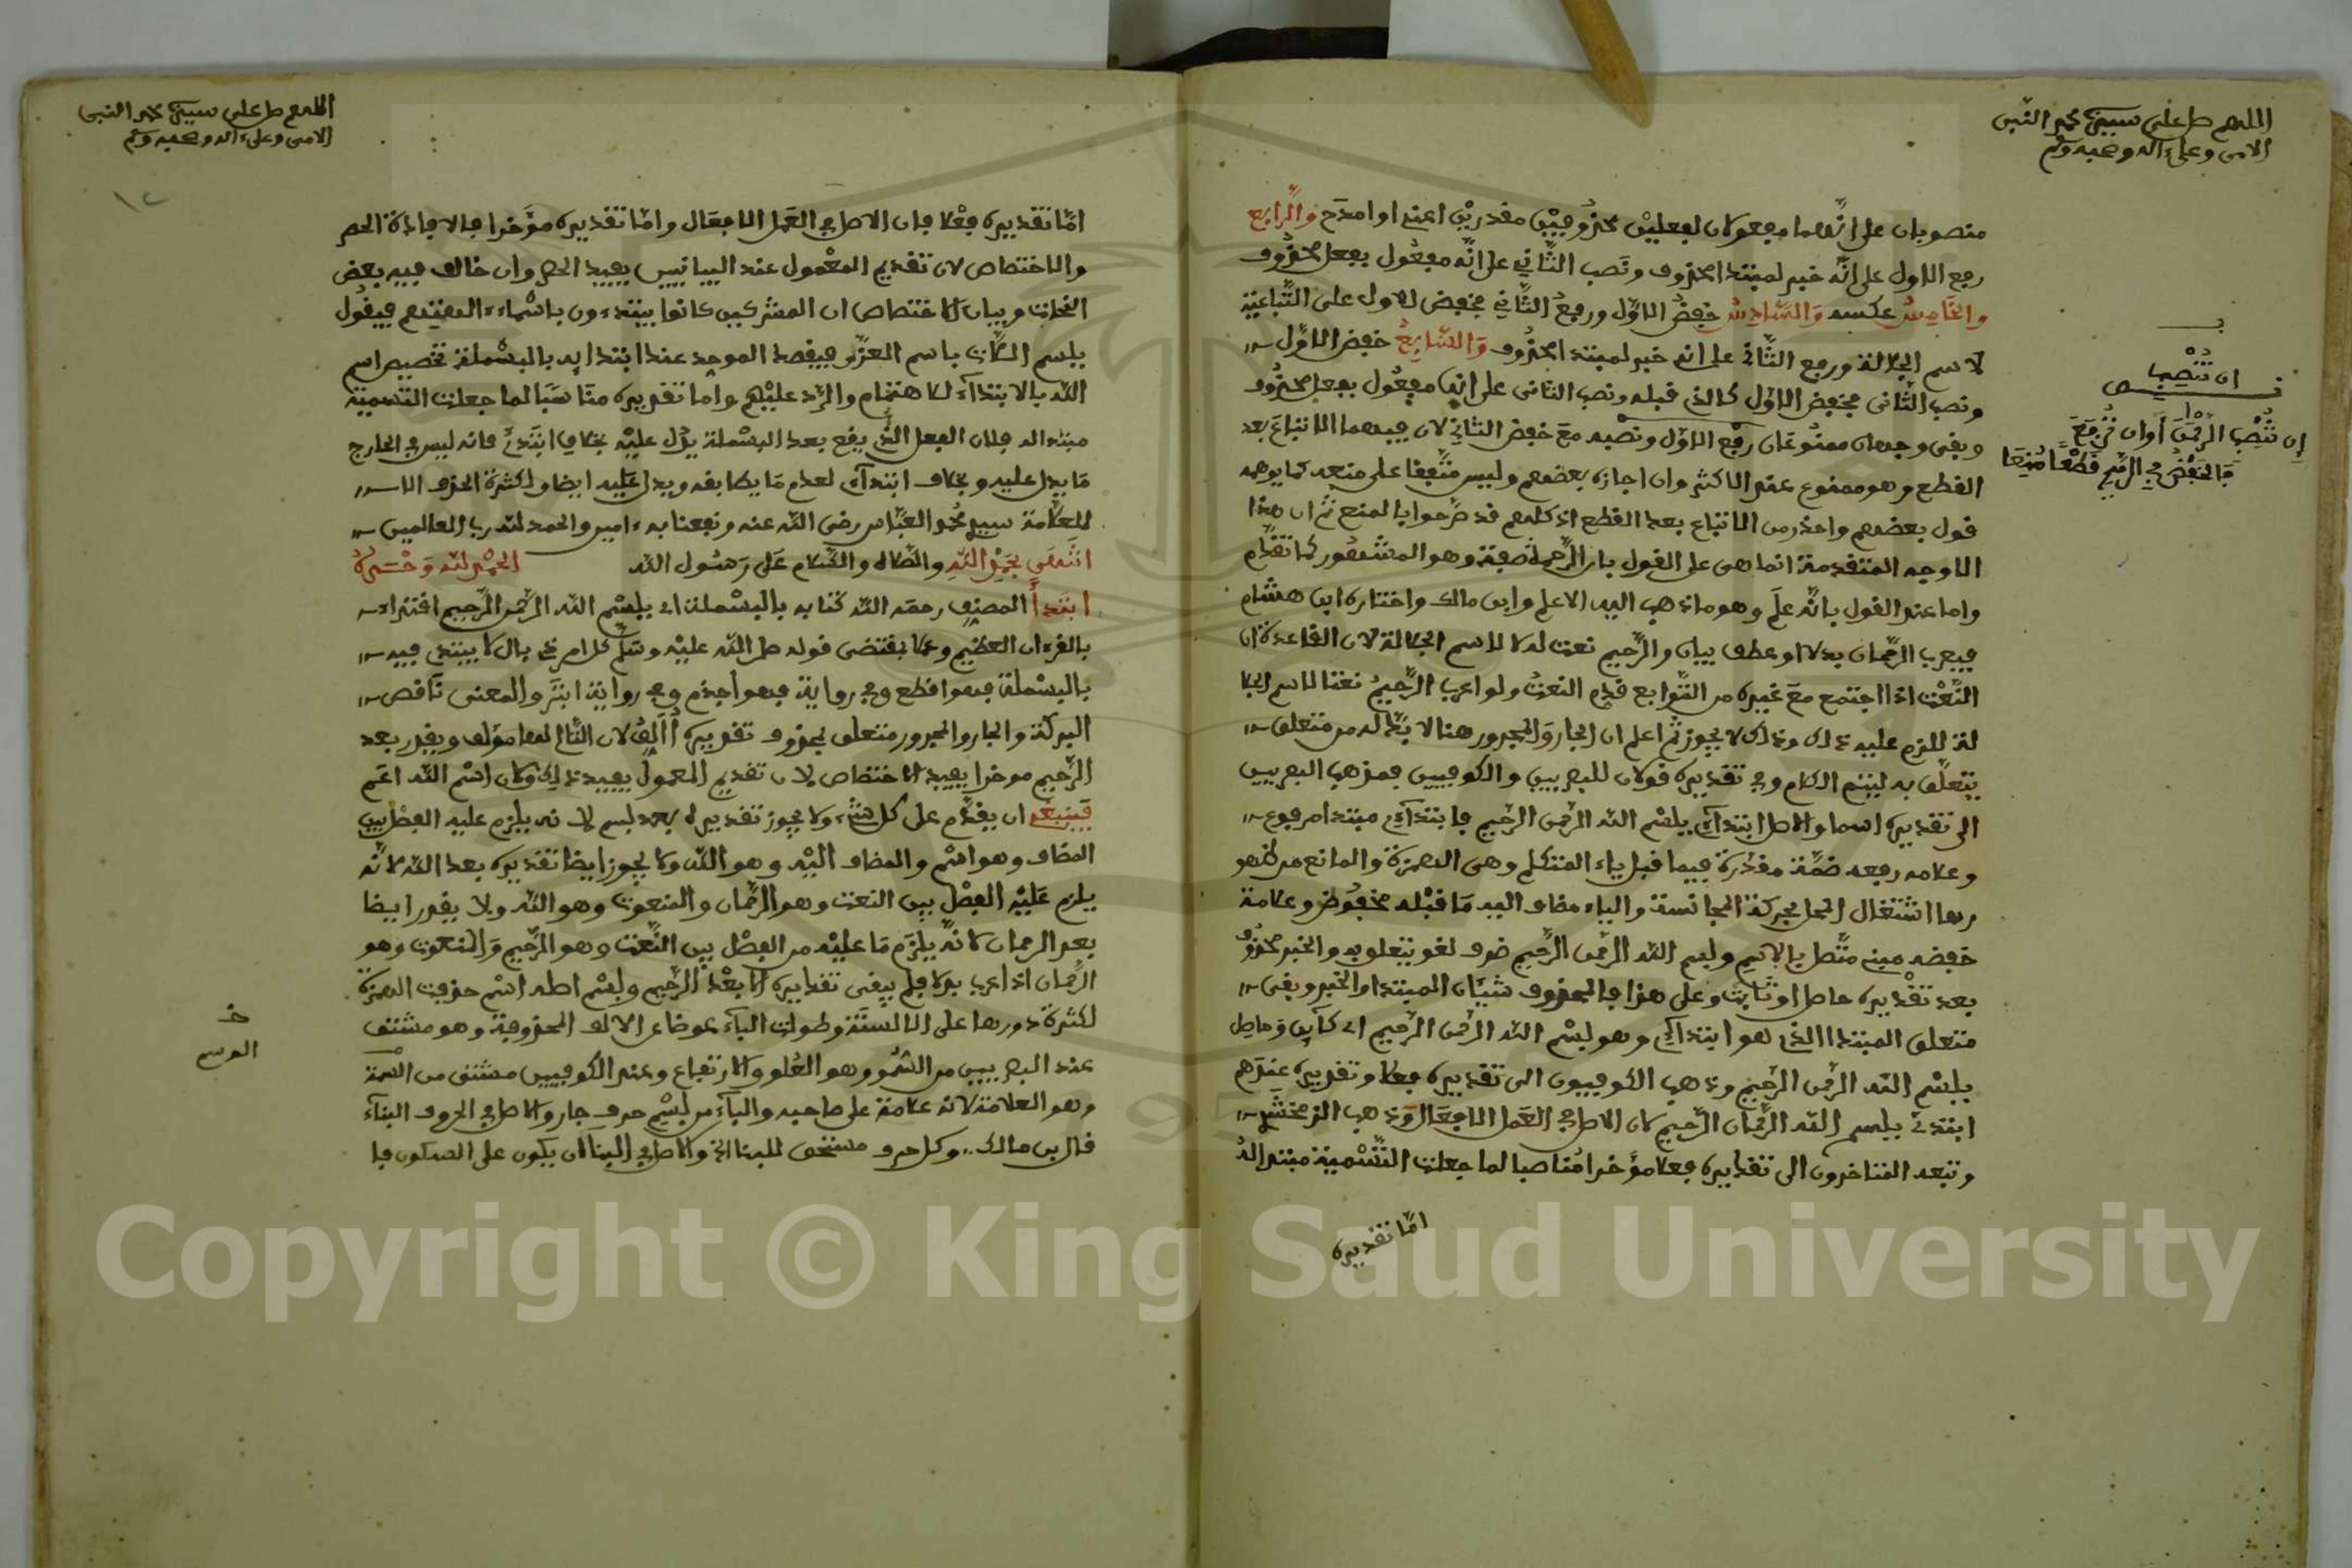 اللهم صل على سيدنا محمد النبي
الامي وعلى اله وصحبه وسلم
منصوبان على انهما مفعولان لفعلين محذوفين مقدرين اعني او امدح والرابع
رفع الاول على انه خبر لمبتدا محذوف ونصب الثاني على انه مفعول بفعل محذوف
والخامس عكسه والسادس خفض الاول ورفع الثاني فخفض الاول على التباعية
لاسم الجلالة ورفع الثاني على انه خبر لمبتدا محذوف والسابع خفض الاول
ونصب الثاني فخفض الاول كالذي قبله ونصب الثاني على انه مفعول بفعل محذوف
وبقي وجهان ممنوعان رفع الاول ونصبه مع خفض الثاني لان فيهما الاتباع بعد
القطع وهو ممنوع عند الاكثر وان اجازه بعضهم وليس متفقا على منعه كما يوهمه
قول بعضهم واحذر من الاتباع بعد القطع اذ كلهم قد صرحوا بالمنع ثم ان هذا
الاوجه المتقدمة انما هي على القول بان الرحمان صفة وهو المشهور كما تقدم
واما عند القول بانه علم وهو ما ذهب اليه الاعلم وابن مالك واختاره ابن هشام
فيعرب الرحمان بدلا او عطف بيان والرحيم نعت له لا لاسم الجلالة لان القاعدة ان
النعت اذا اجتمع مع غيره من التوابع قدم النعت ولو اعرب الرحيم نعتا لاسم الجلا
لة للزم عليه ذلك وذلك لا يجوز ثم اعلم ان الجار والمجرور هنا لا بد له من متعلق
يتعلق به ليتم الكلام وفي تقديره قولان للبصريين والكوفيين فمذهب البصريين
الى تقديره اسما والاصل ابتداءي بسم الله الرحمن الرحيم فابتداءي مبتدا مرفوع
وعلامة رفعه ضمة مقدرة فيما قبل ياء المتكلم وهي الهمزة والمانع من ظهو
رها اشتغال المحل بحركة المجانسة والياء مضاف اليه ما قبله مخفوض وعلامة
خفضه مبني متصل بالاسم وبسم الله الرحمن الرحيم ضرف لغو يتعلق به والخبر محذوف
بعد تقديره حاصل او ثابت وعلى هذا فالمحذوف شيئان المبتدا والخبر وبقي
متعلق المبتدا الذي هو ابتداءي وهو بسم الله الرحمن الرحيم اي كاين وحاصل
ببسم الله الرحمن الرحيم وذهب الكوفييون الى تقديره فعلا وتقديره عندهم
ابتدئ ببسم الله الرحمان الرحيم لان الاصل في العمل الافعال وذهب الزمخشري
وتبعه المتاخرون الى تقديره فعلا مؤخرا مناصبا لما جعلت التسمية مبتدا له
اما تقديره
ان تنصب
ان تنصب الرحمن او ان ترفع
فالخفض في الرحيم قطعا منعا
اللهم صل على سيدنا محمد النبي
الامي وعلى اله وصحبه وسلم
١٢
اما تقديره فعلا فان الاصل في العمل الافعال واما تقديره مؤخرا فلافادة الحصر
والاختصاص لان تقديم المعمول عند البيانيين يفيد الحصر وان خالف فيه بعض
النحات وبيان الاختصاص ان المشركين كانوا يبتدءون باسماء الهتهم فيقول
بسم اللات باسم العزى فيقصد الموحد عند ابتدايه بالبسملة تخصيص اسم
الله بالابتداء للاهتمام والرد عليهم واما تقديره مناسبا لما جعلت التسمية
مبتدا له فلان الفعل الذي يقع بعد البسملة يدل عليه بخلاف ابتدئ فانه ليس في الخارج
ما يدل عليه وبخلاف ابتداءي لعدم ما يطابقه ويدل عليه ايضا ولكثرة الحذف
للعلامة سيدي العباس رضي الله عنه ونفعنا به ءامين والحمد لله رب العالمين
انتهى بحمد الله والصلاه والسلام على رسول الله الحمد لله وحده
ابتدا المصنف رحمه الله كتابه بالبسملة اي ببسم الله الرحمن الرحيم اقتداء
بالقرءان العظيم وعملا بمقتضى قوله صلى الله عليه وسلم كل امر ذي بال لا يبتدئ فيه
بالبسملة فهو اقطع وفي رواية فهو اجذم وفي رواية ابتر والمعنى ناقص
البركة والجار والمجرور متعلق بمحذوف تقديره اؤلف لان التالي لها مؤلف ويقدر بعد
الرحيم موخرا ليفيد الاختصاص لان تقديم المعمول يفيد ذلك ولان اسم الله اعم
فينبغي ان يقدم على كل شيء ولا يجوز تقديره بعد بسم لانه يلزم عليه الفصل بين
المضاف وهو اسم والمضاف اليه وهو الله ولا يجوز ايضا تقديره بعد الله لانه
يلزم عليه الفصل بين النعت وهو الرحمان والمنعوت وهو الله ولا يقدر ايضا
بعد الرحمان لانه يلزم ما عليه من الفصل بين النعت وهو الرحيم والمنعوت وهو
الرحمان اذا اعرب بدلا فلم يبقى تقديره الا بعد الرحيم وبسم اصله اسم حذفت الهمزة
لكثرة دورها على الالسنة وطولت الباء عوضا عن الالف المحذوفة وهو مشتق
عند البصريين من السمو وهو العلو والارتفاع وعند الكوفيين مشتق من السمة
وهو العلامة لانه علامة على صاحبه والباء من بسم حرف جار والاصل في الحروف البناء
قال ابن مالك وكل حرف مستحق للبنا الخ والاصل في البناء ان يكون على السكون فا
الوسم
Copyright © King Saud University